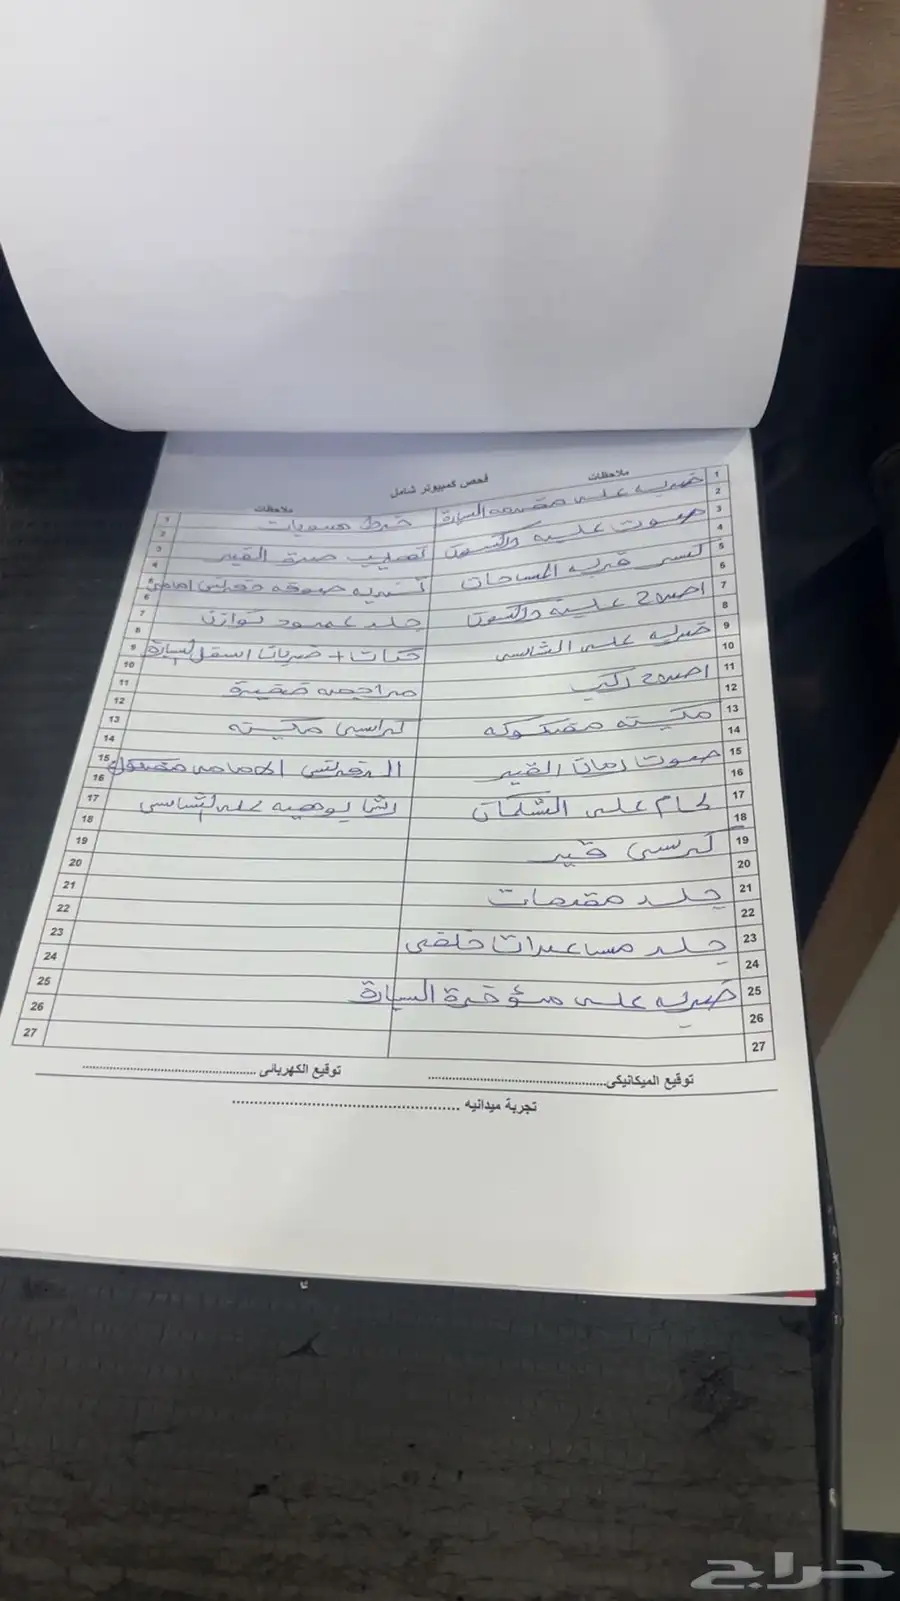 فحص كمبيوتر شامل
ملاحظات
ملاحظات
1
ضربه على مقدمه السيارة
2
3
صوت علبه دركسون
4
5
كسر قربه المساحات
6
7
اصلاح علبة دركسون
8
9
ضربه على الشاسي
10
11
12
13
مكينه مفكوكه
14
15
صوت رمان القير
16
17
لحام على الشكمان
18
19
كرسي قير
20
21
جلد مقصات
22
23
جلد مساعدات خلفي
24
25
ضربه على مؤخرة السيارة
26
27
1
خرط هوبات
2
3
القير
4
5
6
7
جلد عمود توازن
8
9
حتات + ضربات اسفل السيارة
10
11
مراجعه ضفيرة
12
13
كراسي مكينه
14
15
الدفرنس الامامي مفكوك
16
17
على الشاسي
18
19
20
21
22
23
24
25
26
27
توقيع الميكانيكى
توقيع الكهربائى
تجربة ميدانيه
حراج